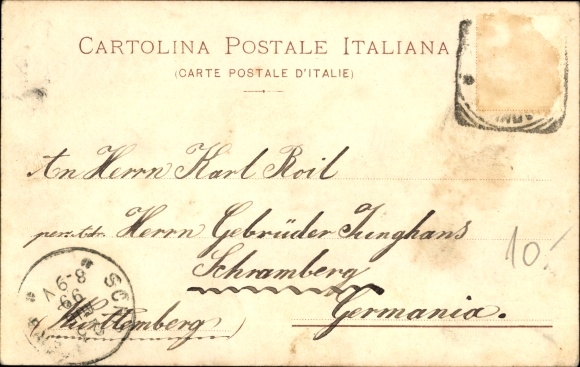 CARTOLINA POSTALE ITALIANA
(CARTE POSTALE D'ITALIE)
An Herrn Karl Roil
Herrn Gebrüder Junghans
Schramberg
(Württemberg) Germania.
10.-
8-9 V
99